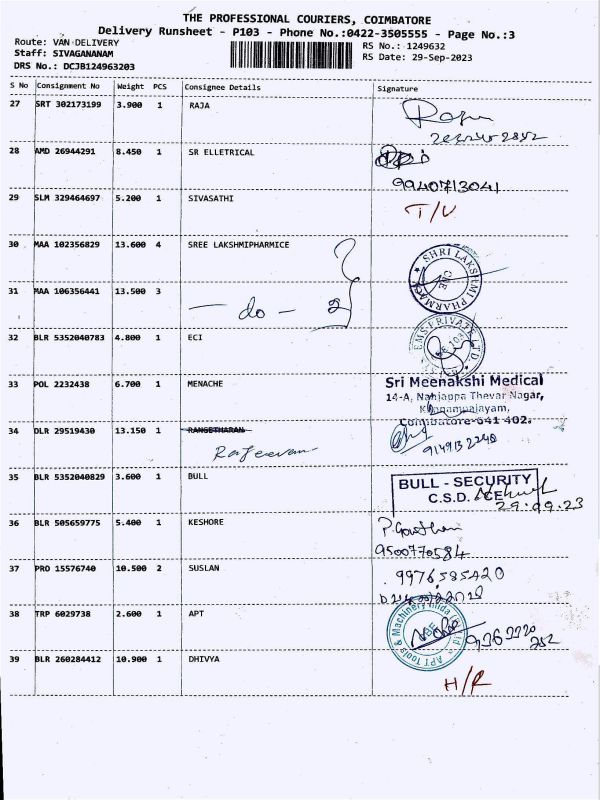 THE PROFESSIONAL COURIERS, COIMBATORE
Delivery Runsheet - P103 - Phone No.:0422-3505555 - Page No.:3
Route: VAN DELIVERY
Staff: SIVAGANANAM
DRS No.: DCJB124963203
RS No.: 1249632
RS Date: 29-Sep-2023
S No Consignment No Weight PCS Consignee Details Signature
27 SRT 302173199 3.900 1 RAJA
28 AMD 26944291 8.450 1 SR ELLETRICAL
9940713041
29 SLM 329464697 5.200 1 SIVASATHI
T/U
30 MAA 102356829 13.600 4 SREE LAKSHMIPHARMICE
SHRI LAKSHMI PHARMACY
31 MAA 106356441 13.500 3
- do -
32 BLR 5352040783 4.800 1 ECI
EMS PRIVATE LTD
33 POL 2232438 6.700 1 MENACHE
Sri Meenakshi Medical
14-A, Nanjappa Thevar Nagar,
Coimbatore-641 402.
34 DLR 29519430 13.150 1 RANGETHARAN
35 BLR 5352040829 3.600 1 BULL
BULL - SECURITY
C.S.D.
29.09.23
36 BLR 505659775 5.400 1 KESHORE
9500770584
37 PRO 15576740 10.500 2 SUSLAN
9976585420
38 TRP 6029738 2.600 1 APT
APT Tools & Machinery India
39 BLR 260284412 10.900 1 DHIVYA
H/R